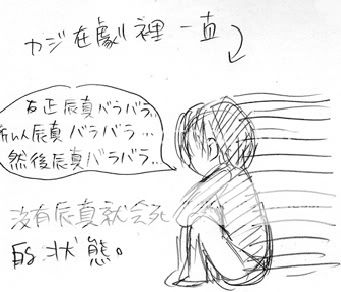 カジ在劇裡一直
友正辰真バラバラ..
人辰真バラバラ...
然後辰真バラバラ..
没有辰真就会死
的狀態。